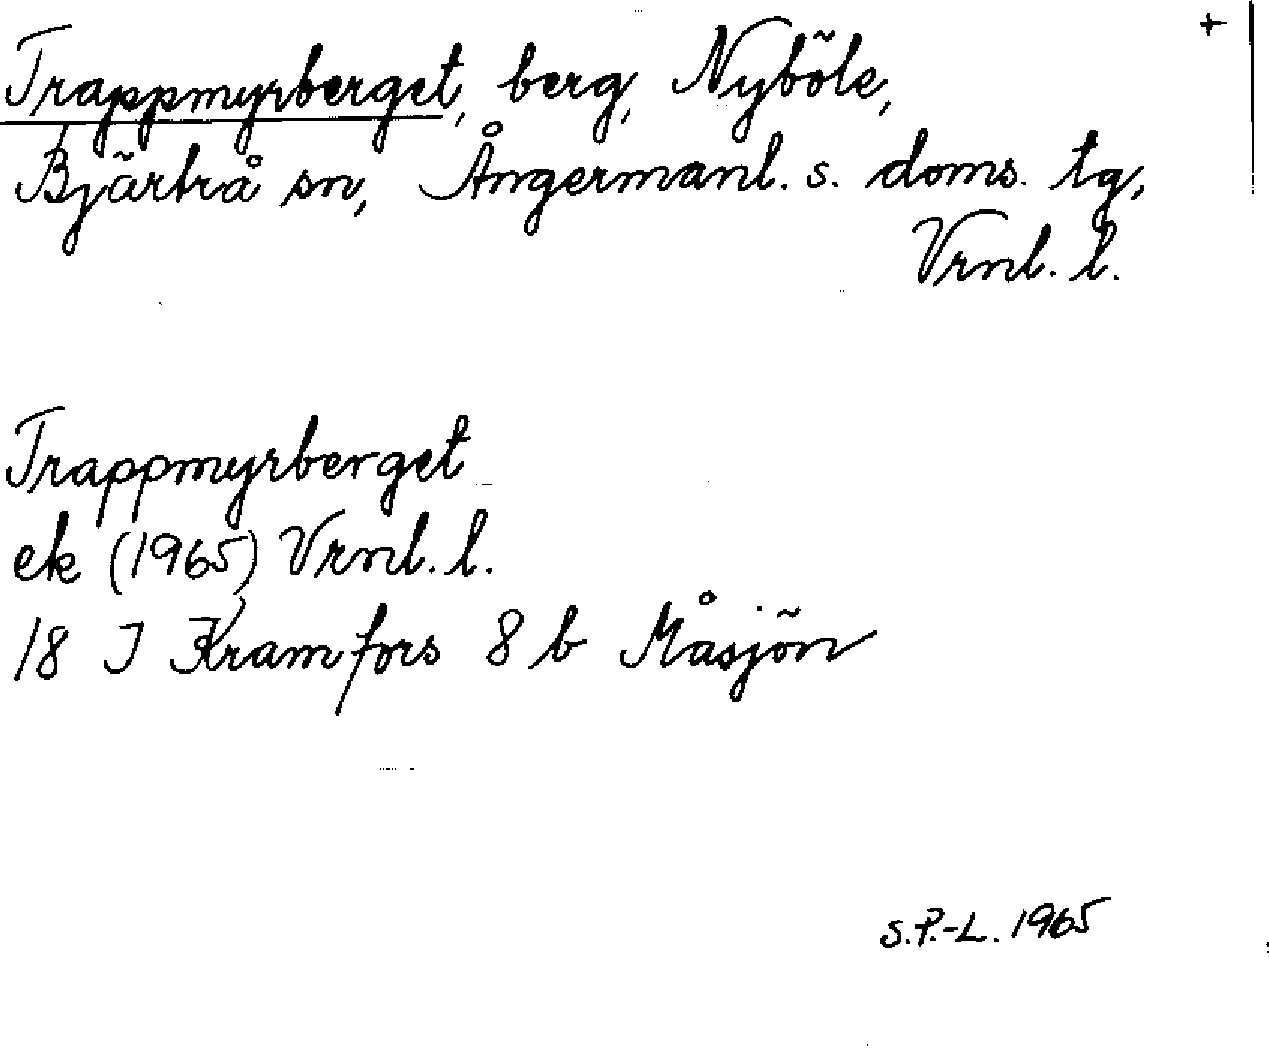 +
Trappmyrberget, berg, Nyböle,
Bjärtrå sn, Ångermanl. s. doms. tg,
Vrnl. l.
Trappmyrberget
ek (1965) Vrnl. l.
18 J Kramfors 8 b Måsjön
S.P.-L. 1965